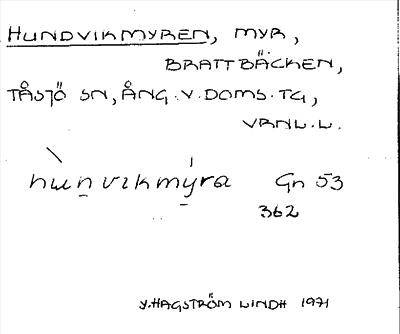 HUNDVIKMYREN, MYR,
BRATTBÄCKEN,
TÅSJÖ SN, ÅNG.V.DOMS.TG,
VRNL.L.
hùn̠vikmýra Gn 53
362
Y.HAGSTRÖM LINDH 1971